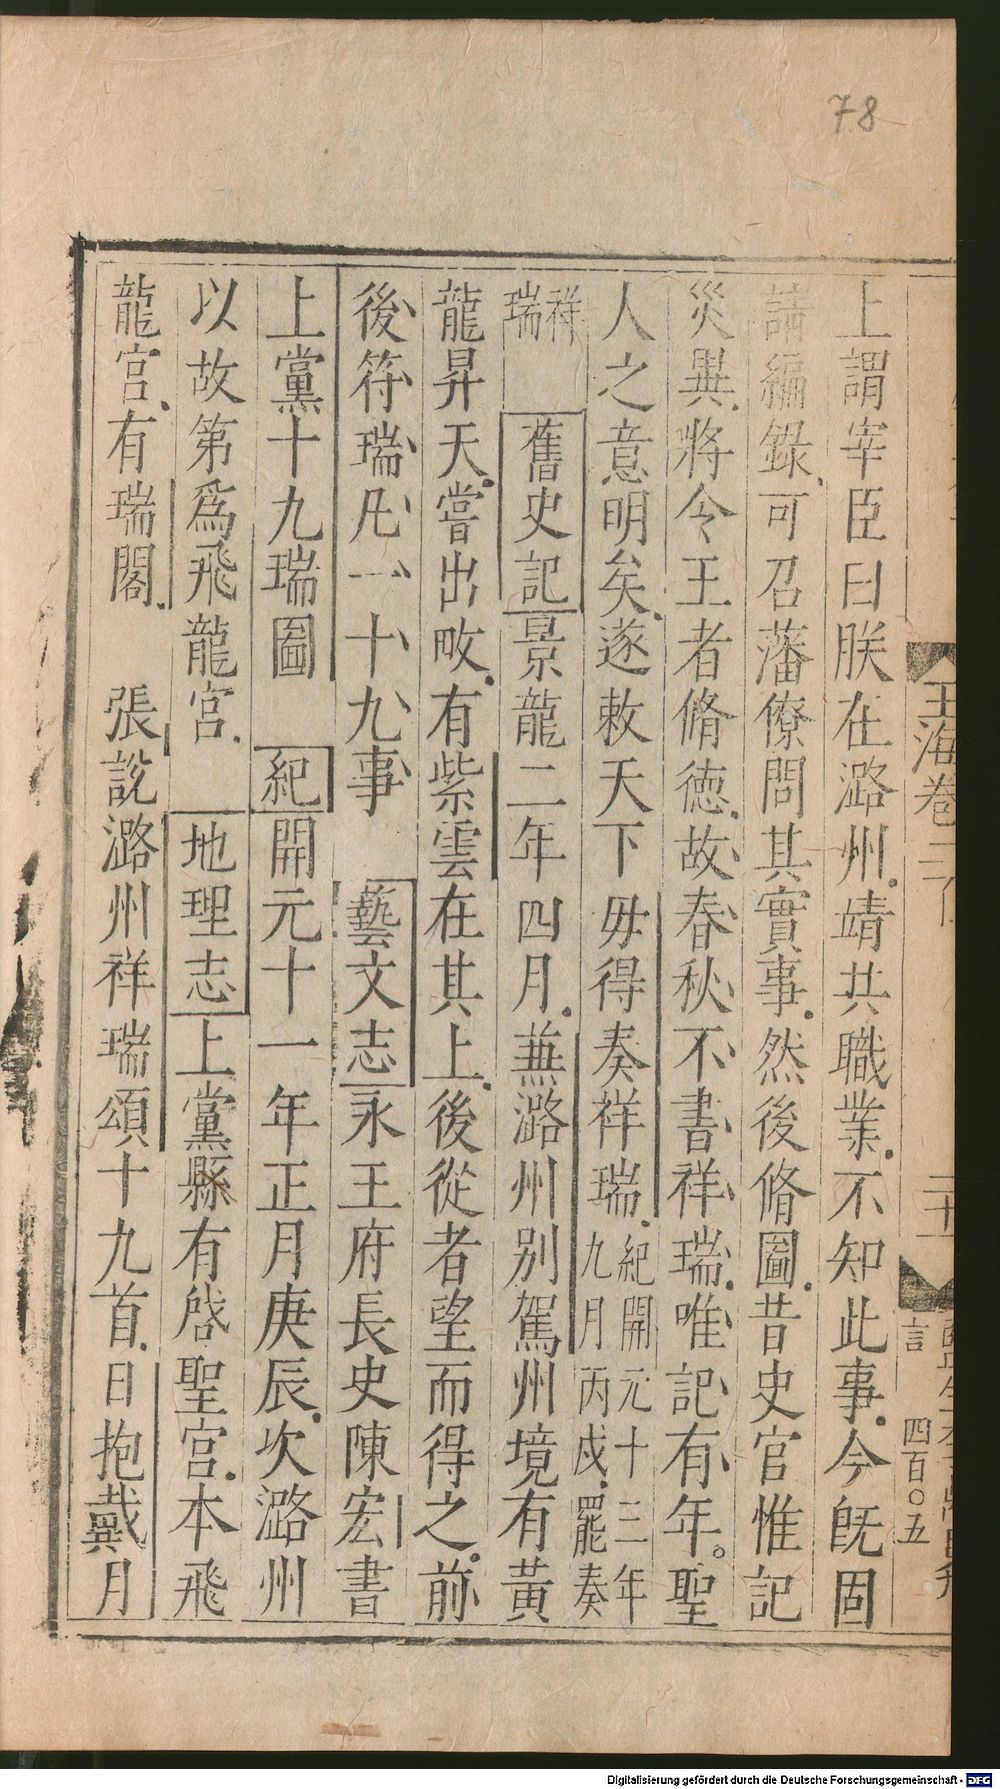 78
上謂宰臣曰朕在潞州靖共職業不知此事今旣固
請編錄可召藩僚問其實事然後脩圖昔史官惟記
災異將令王者脩德故春秋不書祥瑞唯記有年聖
人之意明矣遂敕天下毋得奏祥瑞紀開元十三年
九月丙戌罷奏
祥
瑞 舊史記景龍二年四月兼潞州別駕州境有黃
龍昇天嘗出畋有紫雲在其上後從者望而得之前
後符瑞凡一十九事 藝文志永王府長史陳宏書
上黨十九瑞圖 紀開元十一年正月庚辰次潞州
以故第爲飛龍宮 地理志上黨縣有啓聖宮本飛
龍宮有瑞閣 張說潞州祥瑞頌十九首日抱戴月
玉海卷二百
言 四百○五
Digitalisierung gefördert durch die Deutsche Forschungsgemeinschaft - DFG